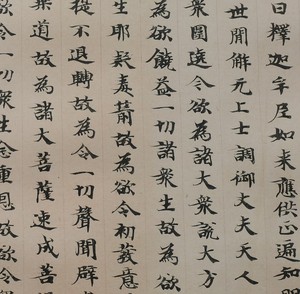 曰釋迦牟尼如来應供正遍知明
世閒解无上士調御丈夫天人
衆圍遶令欲為諸大衆說大方
為欲饒益一切諸衆生故為欲
生耶疑毒箭故為欲令初發意
不退轉故為令一切聲聞辟
乘道故為諸大菩薩速成菩提
欲令一切衆生念重恩故欲令